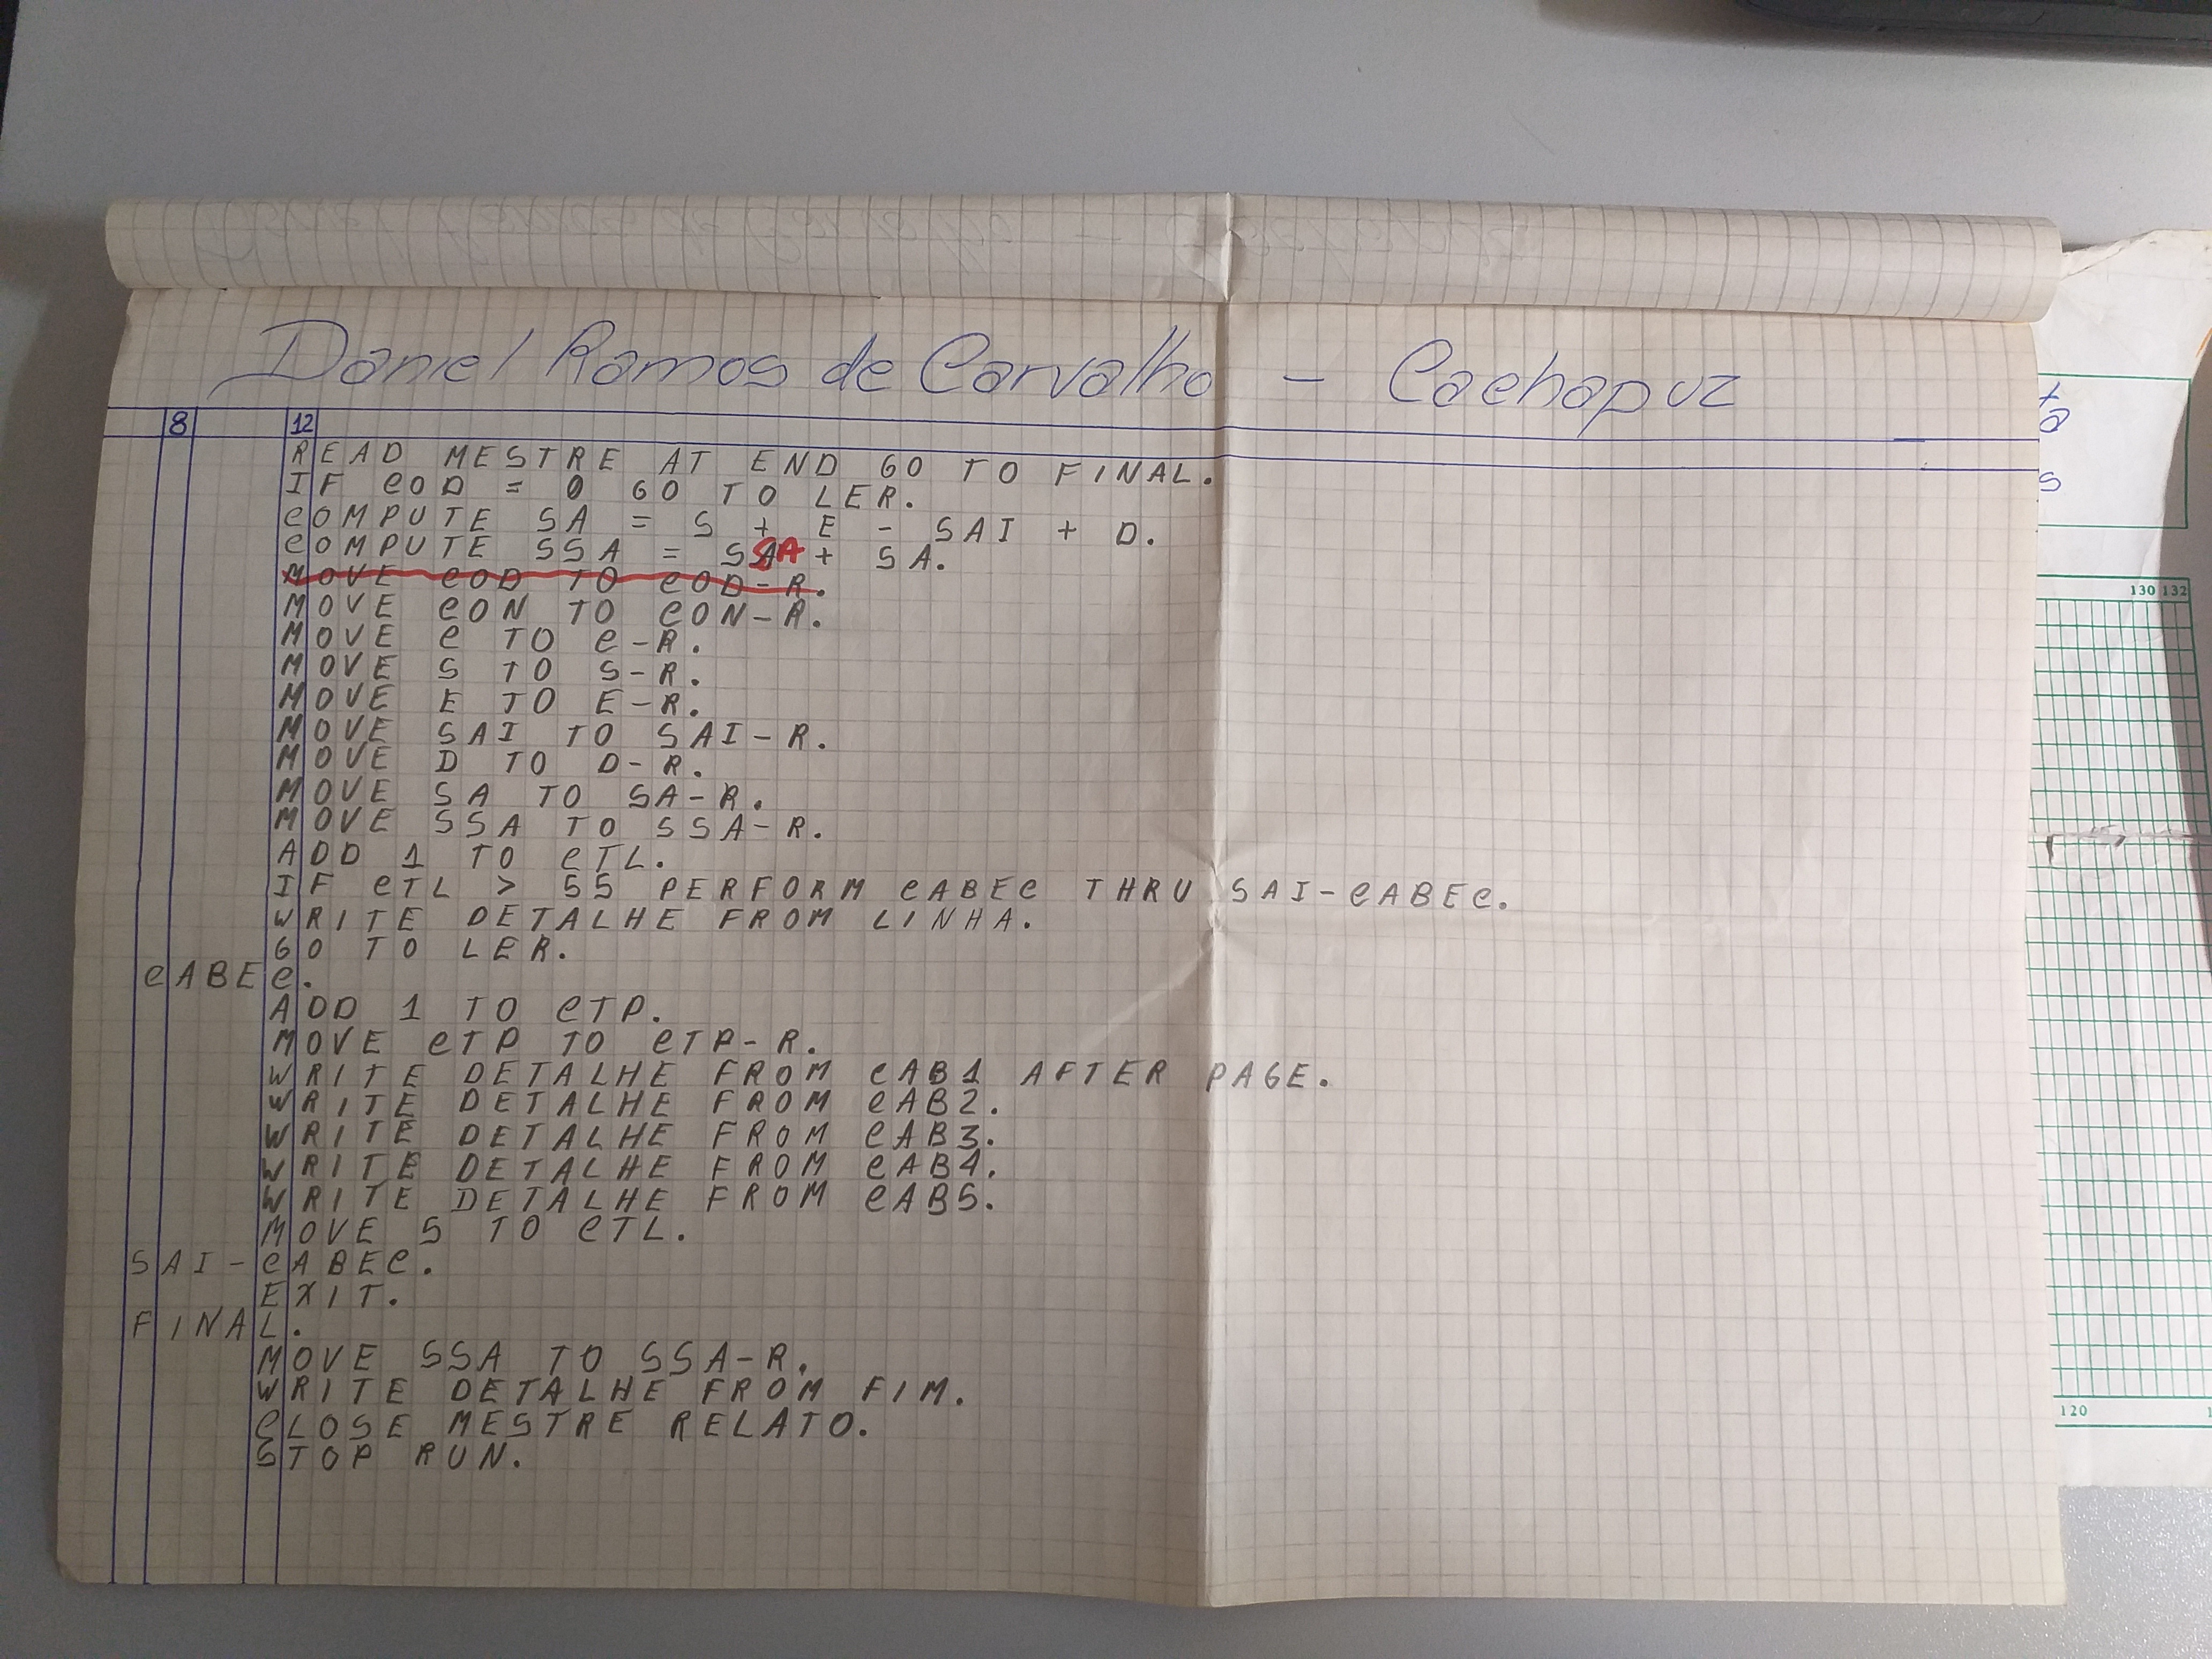 Daniel Ramos de Carvalho - Cachapuz
8 12
READ MESTRE AT END GO TO FINAL.
IF COD = 0 GO TO LER.
COMPUTE SA = S + E - SAI + D.
COMPUTE SSA = SSA + SA.
MOVE COD TO COD-R.
MOVE CON TO CON-R.
MOVE C TO C-R.
MOVE S TO S-R.
MOVE E TO E-R.
MOVE SAI TO SAI-R.
MOVE D TO D-R.
MOVE SA TO SA-R.
MOVE SSA TO SSA-R.
ADD 1 TO CTL.
IF CTL > 55 PERFORM CABEC THRU SAI-CABEC.
WRITE DETALHE FROM LINHA.
GO TO LER.
CABEC.
ADD 1 TO CTP.
MOVE CTP TO CTP-R.
WRITE DETALHE FROM CAB1 AFTER PAGE.
WRITE DETALHE FROM CAB2.
WRITE DETALHE FROM CAB3.
WRITE DETALHE FROM CAB4.
WRITE DETALHE FROM CAB5.
MOVE 5 TO CTL.
SAI-CABEC.
EXIT.
FINAL.
MOVE SSA TO SSA-R.
WRITE DETALHE FROM FIM.
CLOSE MESTRE RELATO.
STOP RUN.
130 132
120